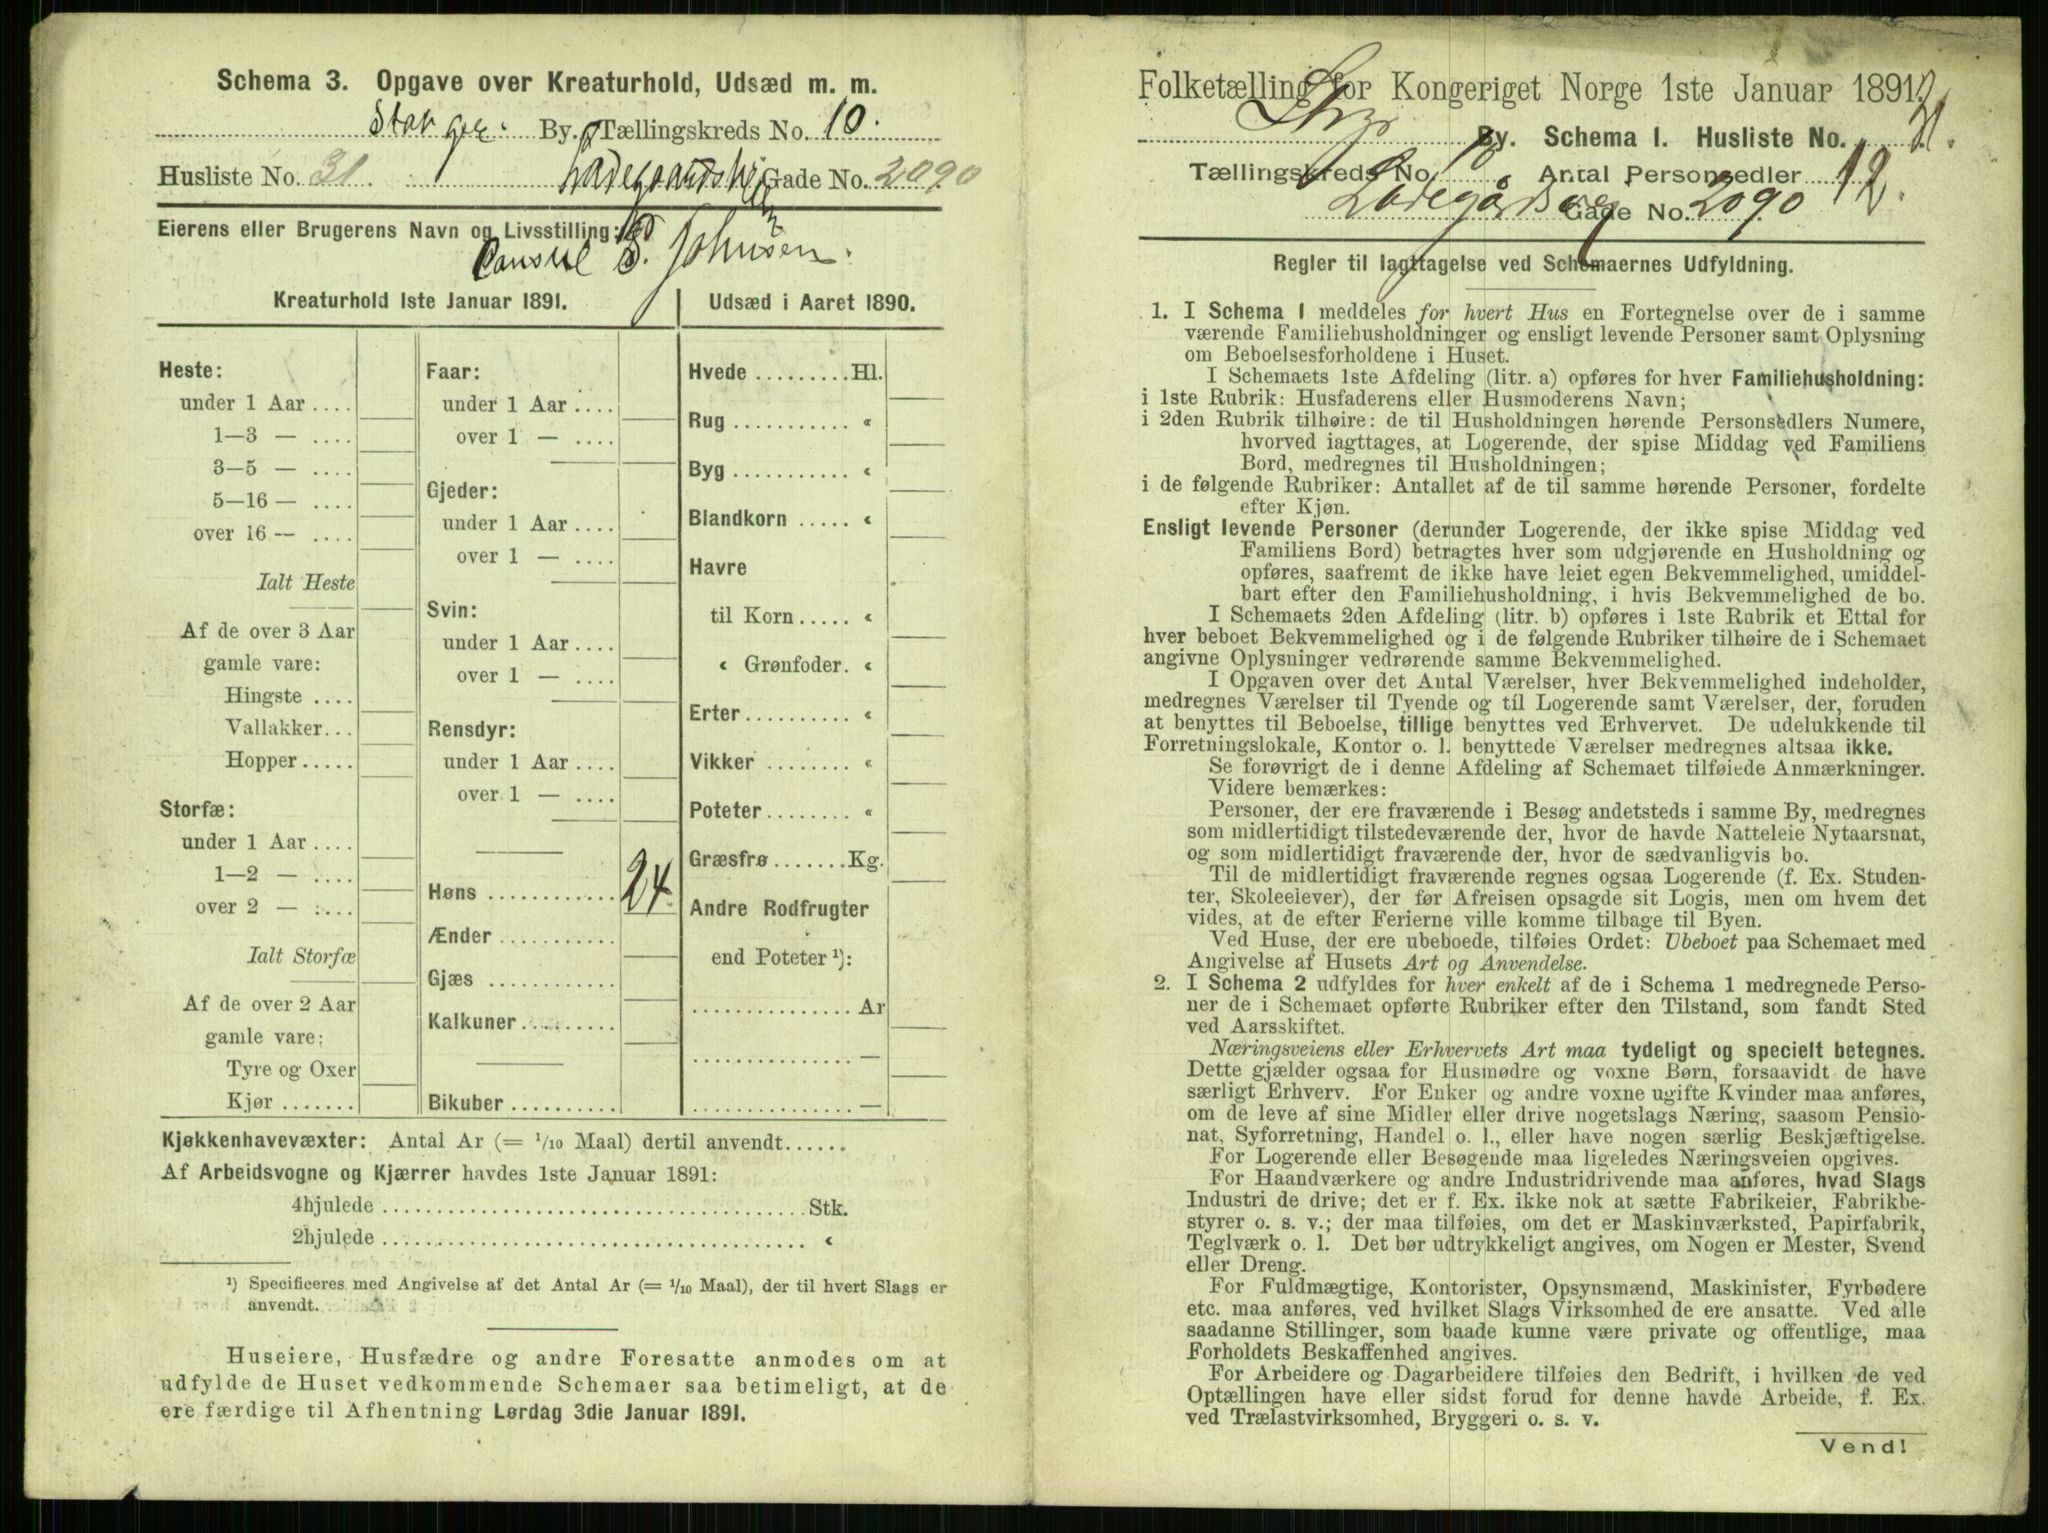 Schema 3. Opgave over Kreaturhold, Udsæd m. m.
Stavger. By. Tællingskreds No. 10.
Husliste No. 31. Ladegaardsveien Gade No. 2090
Eierens eller Brugerens Navn og Livsstilling:
Consul S. Johnsen.
Kreaturhold 1ste Januar 1891. Udsæd i Aaret 1890.
Heste:
under 1 Aar ....
1—3 — ....
3—5 — ....
5—16 — ....
over 16 — ....
Ialt Heste
Af de over 3 Aar
gamle vare:
Hingste ....
Vallakker...
Hopper.....
Storfæ:
under 1 Aar ....
1—2 — ....
over 2 — ....
Ialt Storfæ
Af de over 2 Aar
gamle vare:
Tyre og Oxer
Kjør .......
Faar:
under 1 Aar ....
over 1 — ....
Gjeder:
under 1 Aar ....
over 1 — ....
Svin:
under 1 Aar ....
over 1 — ....
Rensdyr:
under 1 Aar ....
over 1 — ....
Høns ............ 24.
Ænder ...........
Gjæs ............
Kalkuner.........
Bikuber ..........
Hvede .........Hl.
Rug ........... «
Byg ........... «
Blandkorn ..... «
Havre
til Korn..... «
« Grønfoder. «
Erter.......... «
Vikker ........ «
Poteter........ «
Græsfrø .......Kg.
Andre Rodfrugter
end Poteter ¹):
............... Ar
............... —
............... —
Kjøkkenhavevæxter: Antal Ar (= 1/10 Maal) dertil anvendt......
Af Arbeidsvogne og Kjærrer havdes 1ste Januar 1891:
4hjulede ........................................Stk.
2hjulede ........................................ «
¹) Specificeres med Angivelse af det Antal Ar (= 1/10 Maal), der til hvert Slags er
anvendt.
Huseiere, Husfædre og andre Foresatte anmodes om at
udfylde de Huset vedkommende Schemaer saa betimeligt, at de
ere færdige til Afhentning Lørdag 3die Januar 1891.
Folketælling for Kongeriget Norge 1ste Januar 1891.
By. Schema I. Husliste No. 31.
Tællingskreds No. 10 Antal Personsedler 12.
Ladegårdsvej Gade No. 2090
Regler til Iagttagelse ved Schemaernes Udfyldning.
1. I Schema 1 meddeles for hvert Hus en Fortegnelse over de i samme
værende Familiehusholdninger og ensligt levende Personer samt Oplysning
om Beboelsesforholdene i Huset.
I Schemaets 1ste Afdeling (litr. a) opføres for hver Familiehusholdning:
i 1ste Rubrik: Husfaderens eller Husmoderens Navn;
i 2den Rubrik tilhøire: de til Husholdningen hørende Personsedlers Numere,
hvorved iagttages, at Logerende, der spise Middag ved Familiens
Bord, medregnes til Husholdningen;
i de følgende Rubriker: Antallet af de til samme hørende Personer, fordelte
efter Kjøn.
Ensligt levende Personer (derunder Logerende, der ikke spise Middag ved
Familiens Bord) betragtes hver som udgjørende en Husholdning og
opføres, saafremt de ikke have leiet egen Bekvemmelighed, umiddel-
bart efter den Familiehusholdning, i hvis Bekvemmelighed de bo.
I Schemaets 2den Afdeling (litr. b) opføres i 1ste Rubrik et Ettal for
hver beboet Bekvemmelighed og i de følgende Rubriker tilhøire de i Schemaet
angivne Oplysninger vedrørende samme Bekvemmelighed.
I Opgaven over det Antal Værelser, hver Bekvemmelighed indeholder,
medregnes Værelser til Tyende og til Logerende samt Værelser, der, foruden
at benyttes til Beboelse, tillige benyttes ved Erhvervet. De udelukkende til
Forretningslokale, Kontor o. l. benyttede Værelser medregnes altsaa ikke.
Se forøvrigt de i denne Afdeling af Schemaet tilføiede Anmærkninger.
Videre bemærkes:
Personer, der ere fraværende i Besøg andetsteds i samme By, medregnes
som midlertidigt tilstedeværende der, hvor de havde Natteleie Nytaarsnat,
og som midlertidigt fraværende der, hvor de sædvanligvis bo.
Til de midlertidigt fraværende regnes ogsaa Logerende (f. Ex. Studen-
ter, Skoleeiever), der før Afreisen opsagde sit Logis, men om hvem det
vides, at de efter Ferierne ville komme tilbage til Byen.
Ved Huse, der ere ubeboede, tilføies Ordet: Ubeboet paa Schemaet med
Angivelse af Husets Art og Anvendelse.
2. I Schema 2 udfyldes for hver enkelt af de i Schema 1 medregnede Perso-
ner de i Schemaet opførte Rubriker efter den Tilstand, som fandt Sted
ved Aarsskiftet.
Næringsveiens eller Erhvervets Art maa tydeligt og specielt betegnes.
Dette gjælder ogsaa for Husmødre og voxne Børn, forsaavidt de have
særligt Erhverv. For Enker og andre voxne ugifte Kvinder maa anføres,
om de leve af sine Midler eller drive nogetslags Næring, saasom Pensio-
nat, Syforretning, Handel o. l., eller have nogen særlig Beskjæftigelse.
For Logerende eller Besøgende maa ligeledes Næringsveien opgives.
For Haandværkere og andre Industridrivende maa anføres, hvad Slags
Industri de drive; det er f. Ex. ikke nok at sætte Fabrikeier, Fabrikbe-
styrer o. s. v.; der maa tilføies, om det er Maskinværksted, Papirfabrik,
Teglværk o. l. Det bør udtrykkeligt angives, om Nogen er Mester, Svend
eller Dreng.
For Fuldmægtige, Kontorister, Opsynsmænd, Maskinister, Fyrbødere
etc. maa anføres, ved hvilket Slags Virksomhed de ere ansatte. Ved alle
saadanne Stillinger, som baade kunne være private og offentlige, maa
Forholdets Beskaffenhed angives.
For Arbeidere og Dagarbeidere tilføies den Bedrift, i hvilken de ved
Optællingen have eller sidst forud for denne havde Arbeide, f. Ex.
ved Trælastvirksomhed, Bryggeri o. s. v.
Vend!